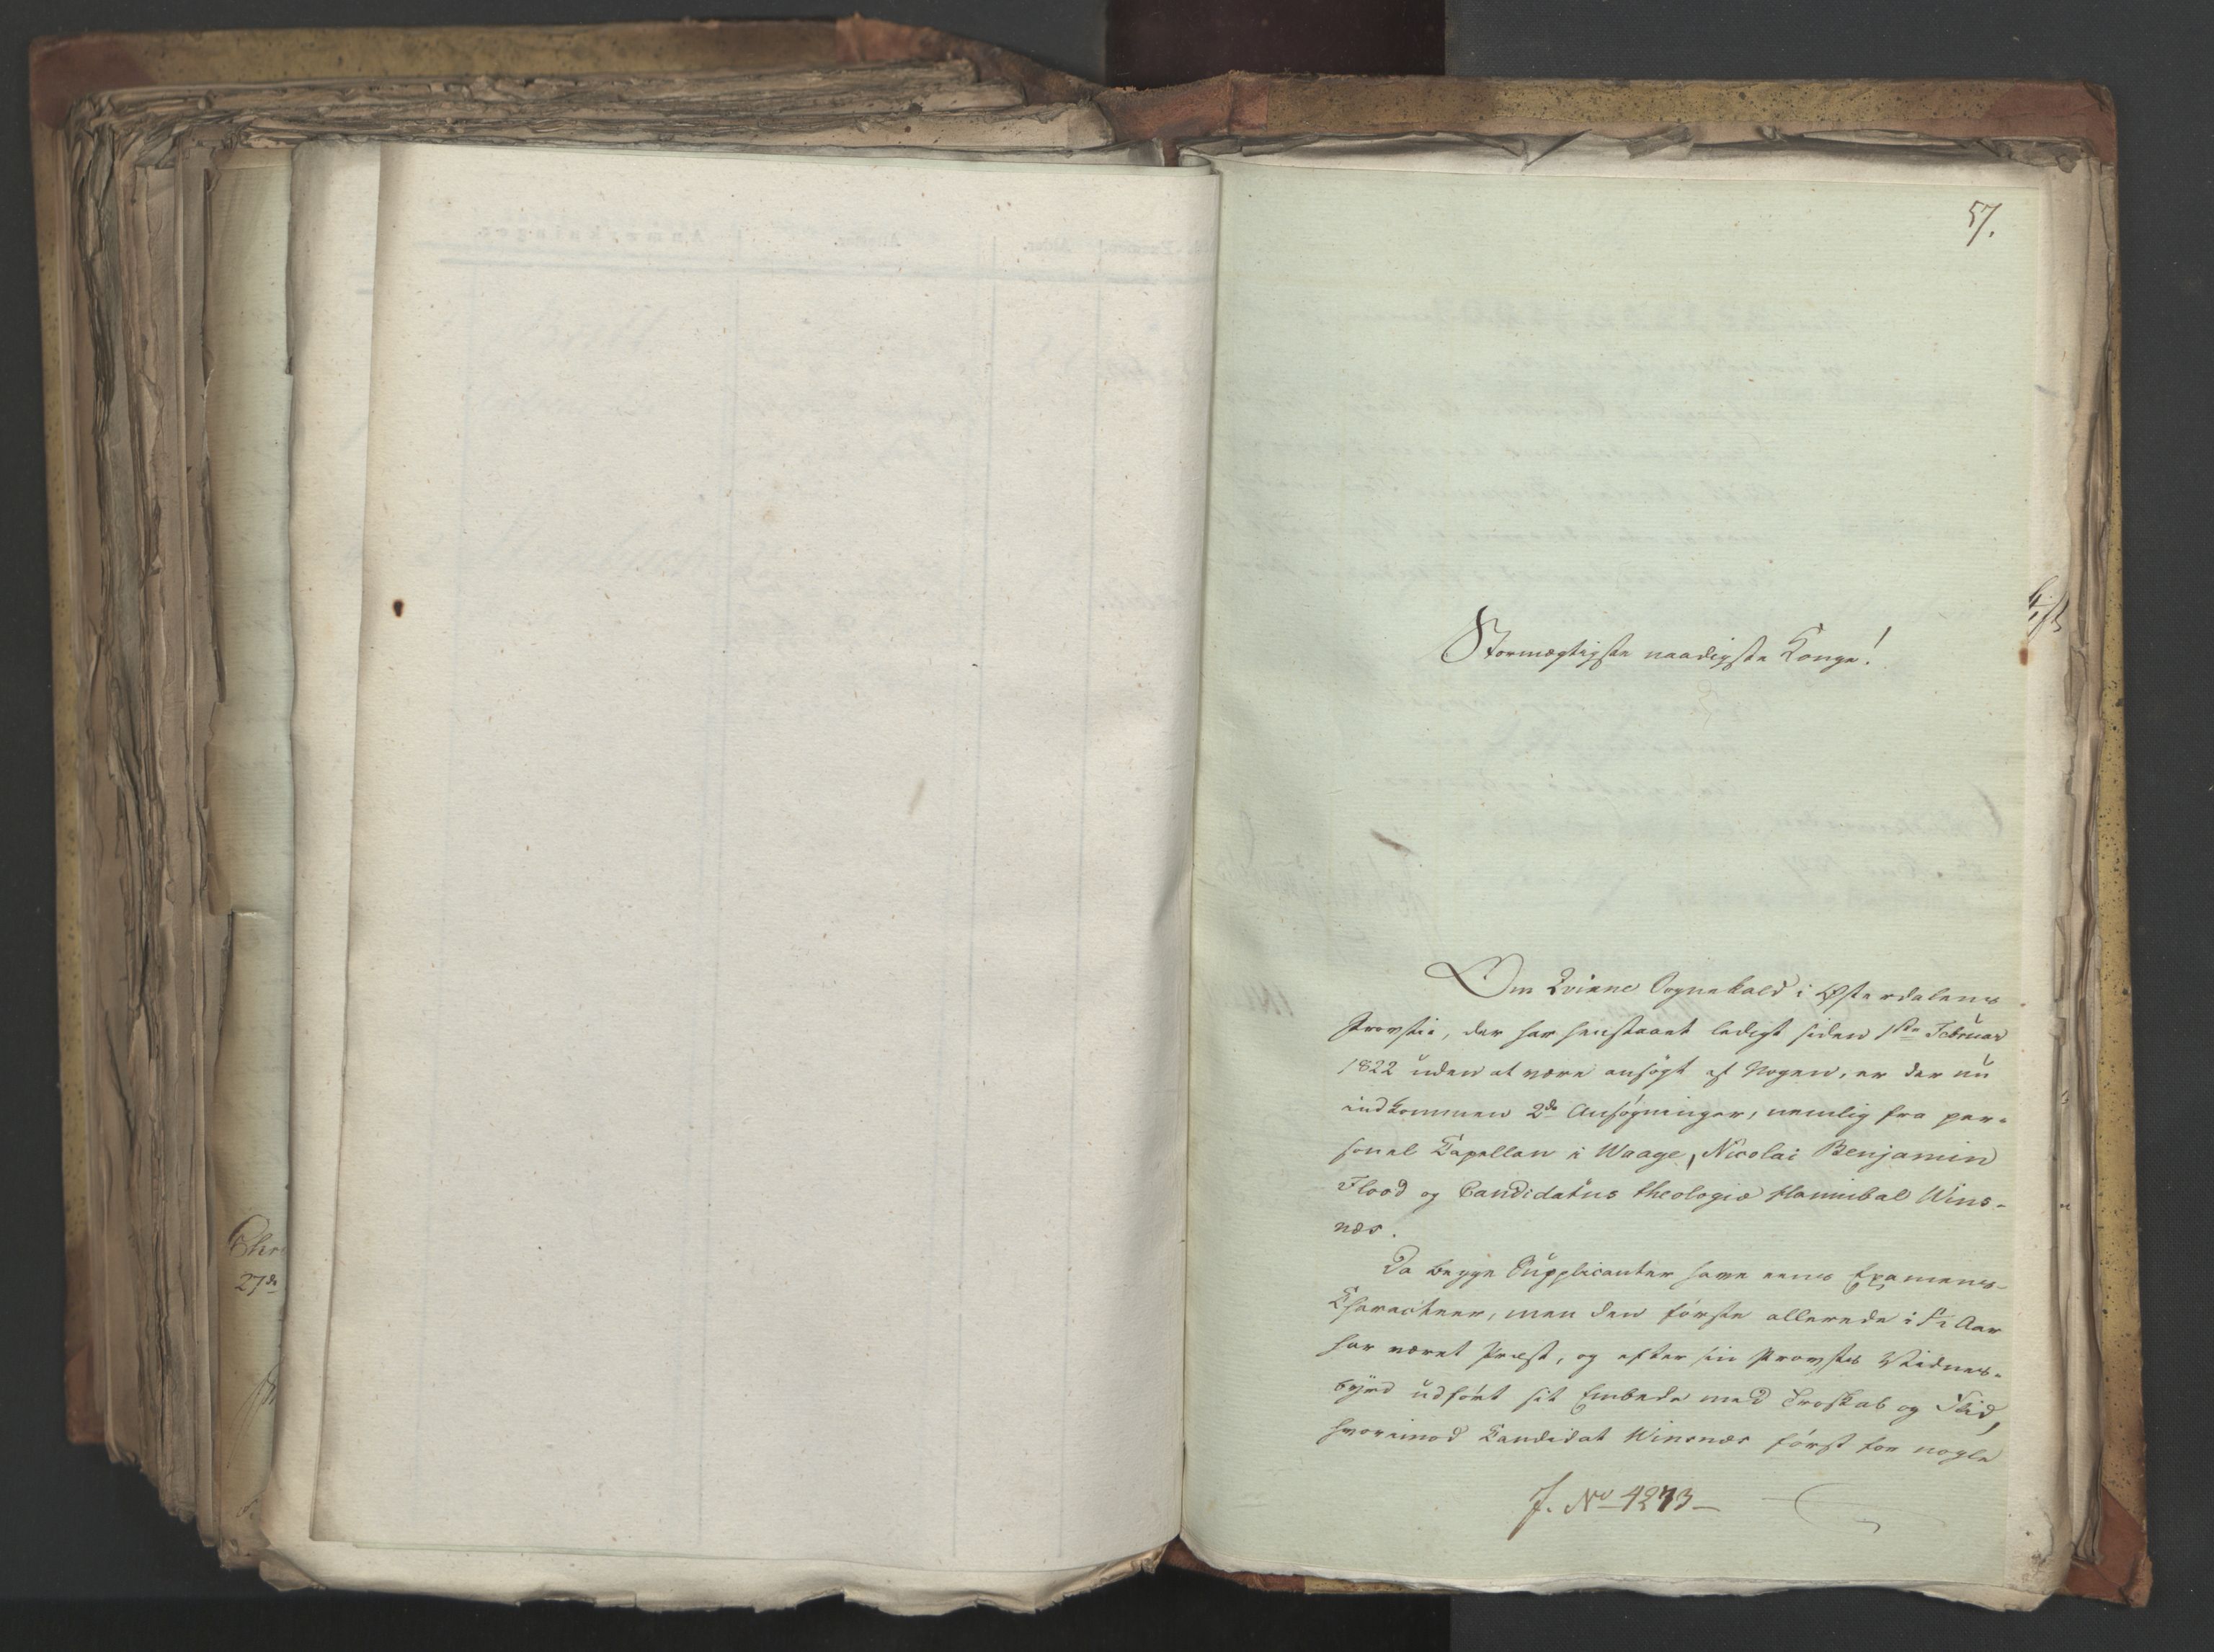 57.
Stormægtigste naadigste Konge!
Om Qvikne Sognekald i Østerdalens
Provstie, der har henstaaet ledigt siden 1ste Februar
1822 uden at være ansøgt af Nogen, er der nu
indkommen 2de Ansøgninger, nemlig fra per-
sonel Kapellan i Waage, Nicolai Benjamin
Flood og Candidatus theologiæ Hannibal Wins-
næs.
Da begge Supplicanter have eens Examens-
Characterer, men den første allerede i Aar
har været Præst, og efter sin Provstes Vidnes-
byrd udført sit Embede med Troskab og Flid,
hvorimod Kandidat Winsnæs først for nogle
J. No 4273
Chri
27de